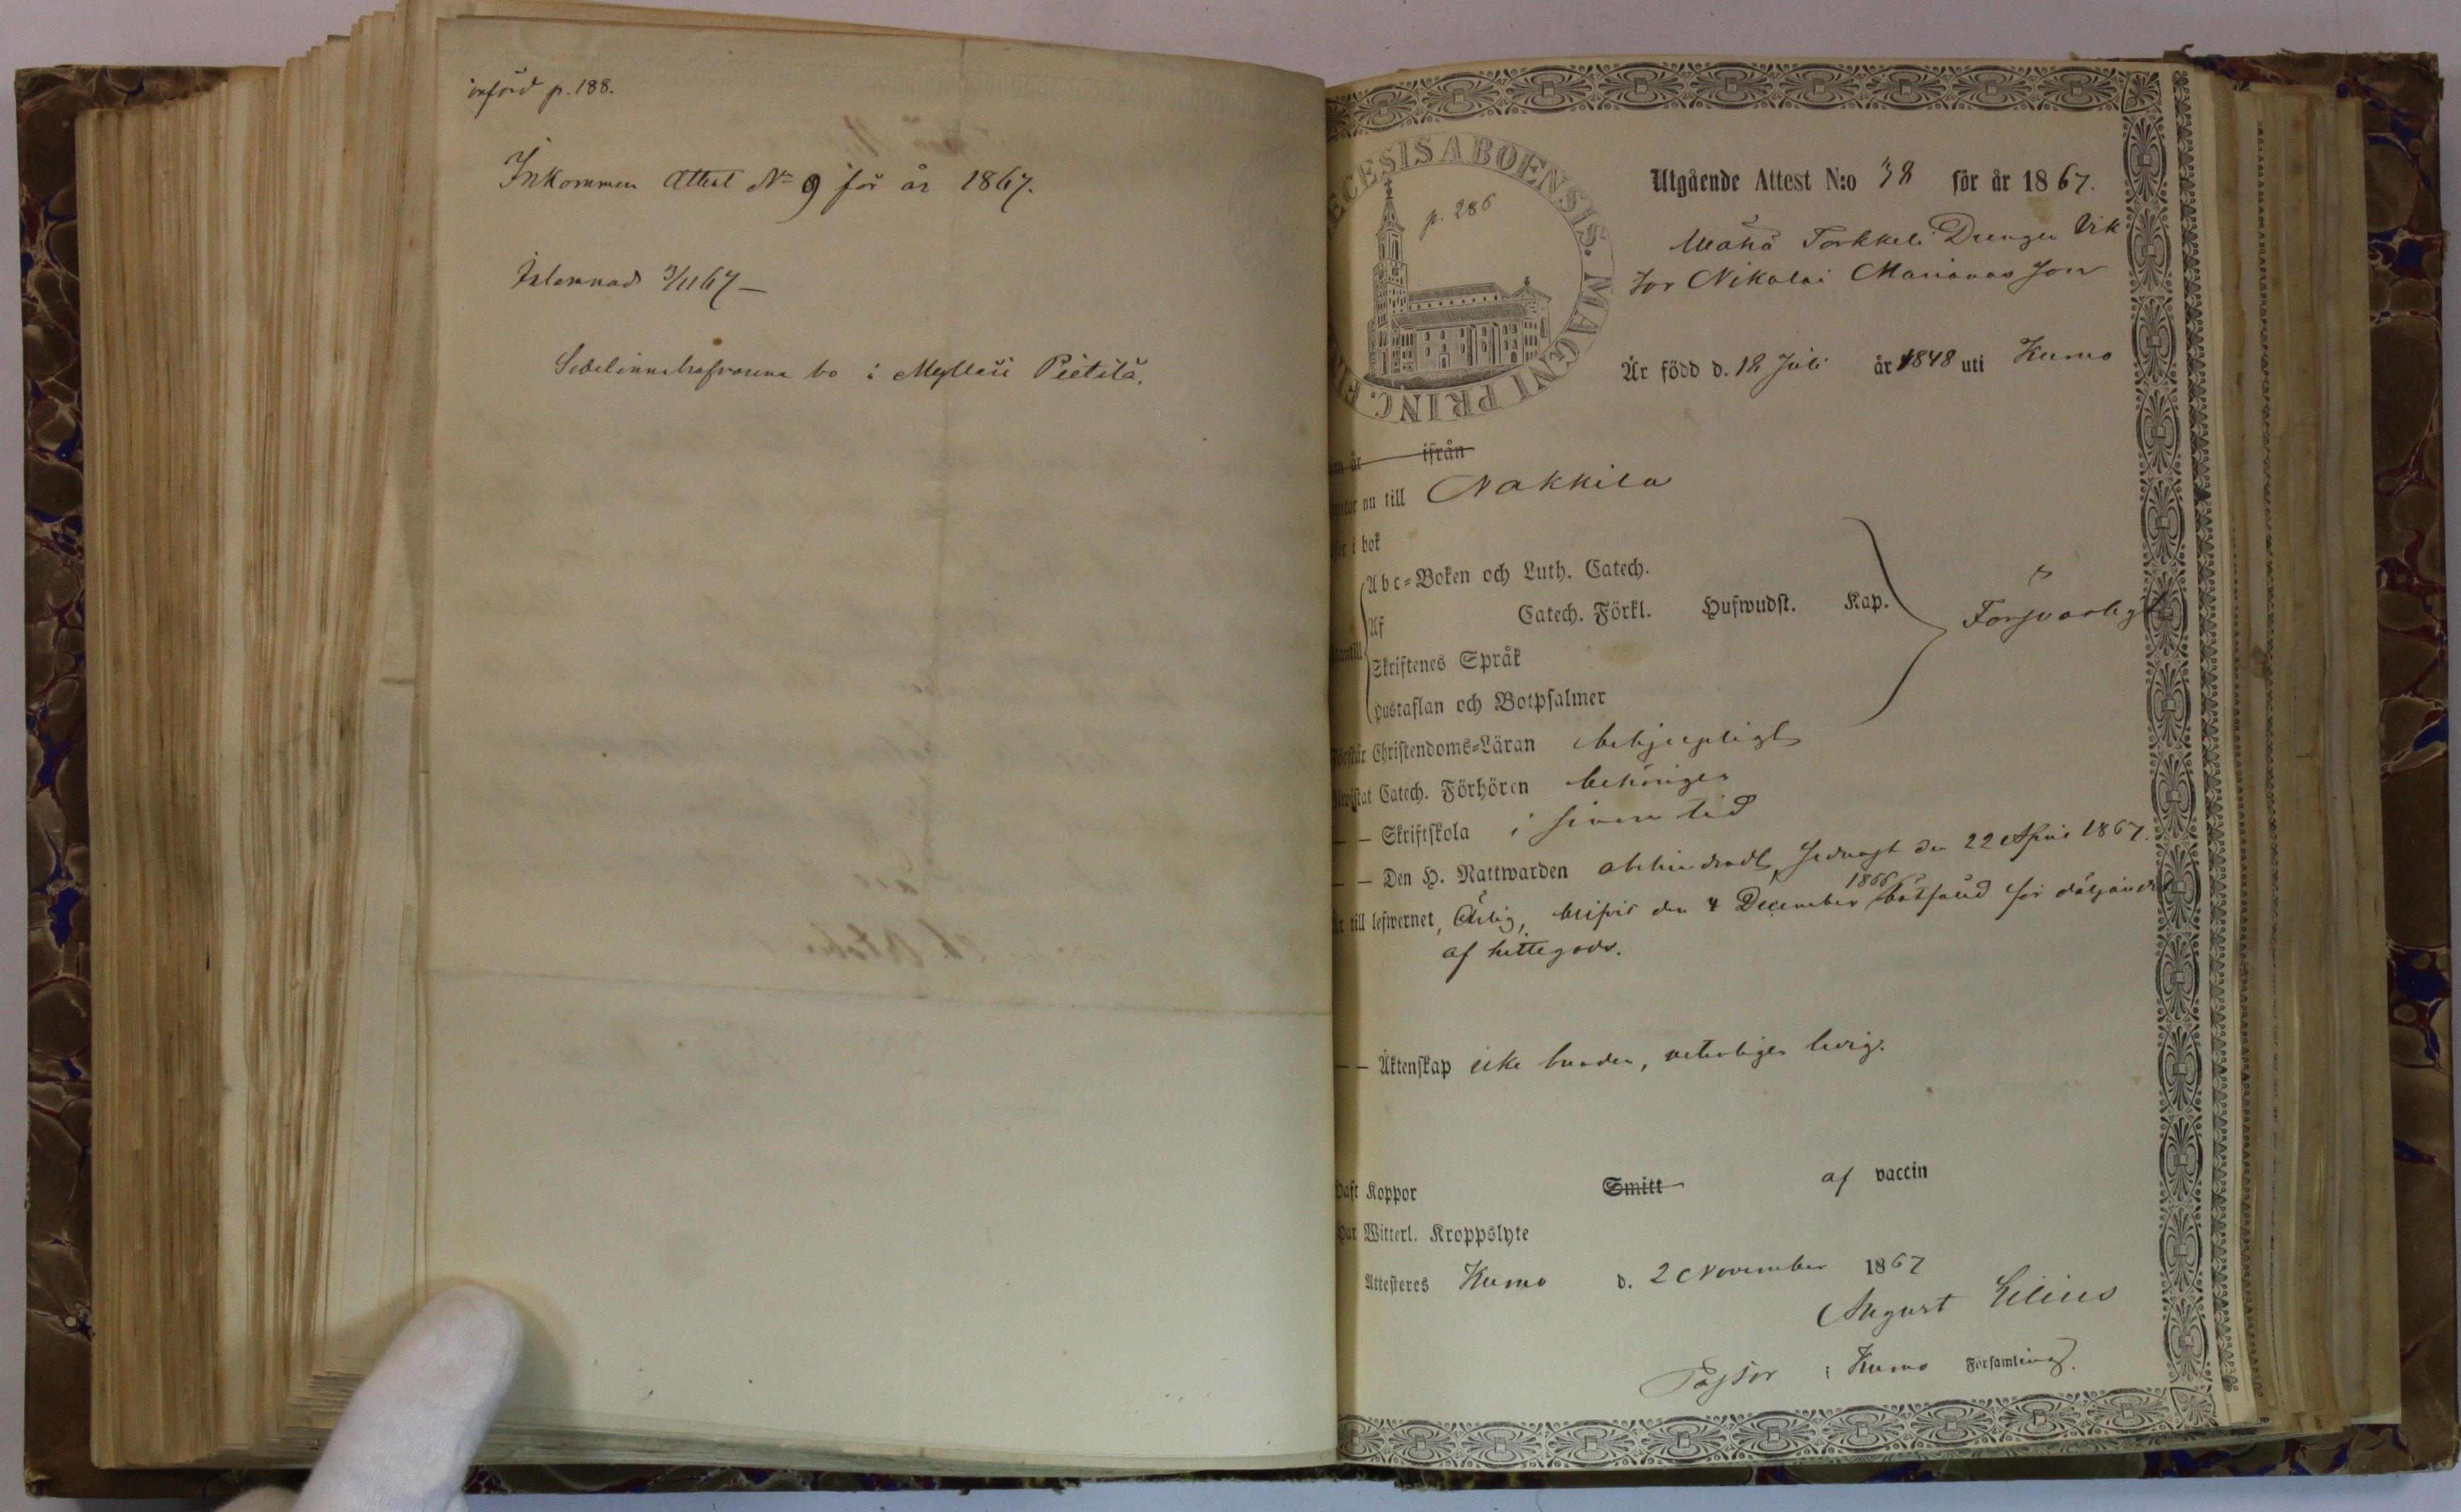 införd p. 188.
Inkommen Attest No 9 för år 1867.
Inlemnad 3/11 67 –
Sedelinnehafvarena bo i Mylleri Pietilä.
ECESIS ABOENSIS. MAGNI PRINC. FIN
p. 286
Utgående Attest N:o 38 för år 1867.
Torkkeli Drengen Vik
tor Nikolai Marianas son
Är född d. 18 Juli år 1848 uti Kumo
om år ifrån
nu till Nakkila
i bok
Abc-Boken och Luth. Catech.
Af Catech. Förkl. Hufwudst. Kap.
Försvarligt
Skriftenes Språk
Hustaflan och Botpsalmer
Förstår Christendoms-Läran behjelpligt
Catech. Förhören behörigen
— — Skriftskola i sinom tid
— — Den H. Nattwarden obehindradt, sednast den 22 April 1867.
Är till lefwernet, Ärlig, blifvit den 4 December 1866 botfäld för döljande
af hittegods.
— — Äktenskap icke bunden, veterligen ledig.
Haft Koppor Smitt af vaccin
Har Witterl. Kroppslyte
Attesteres Kumo d. 2 November 1867
August Lilius
Pastor i Kumo Församling.